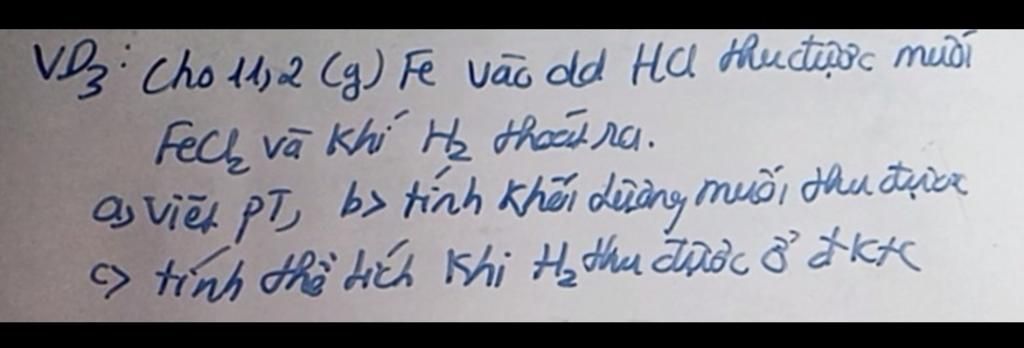 VD3: Cho 11,2 (g) Fe vào dd HCl thu được muối
FeCl2 và khí H2 thoát ra.
a, viết PT, b> tính khối lượng muối thu được
c> tính thể tích khi H2 thu được ở đktc